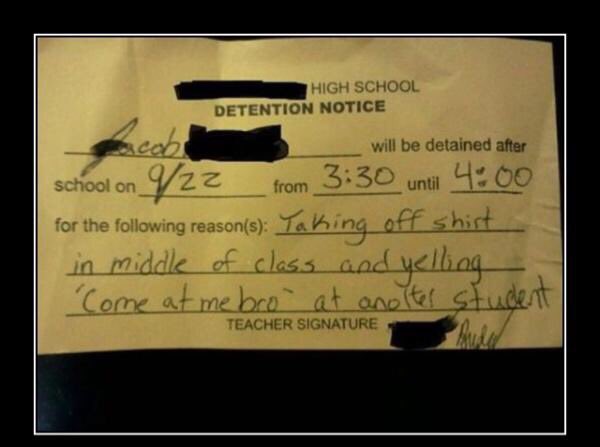 HIGH SCHOOL
DETENTION NOTICE
Jacob will be detained after
school on 9/22 from 3:30 until 4:00
for the following reason(s): Taking off shirt
in middle of class and yelling
"Come at me bro" at anoter student
TEACHER SIGNATURE